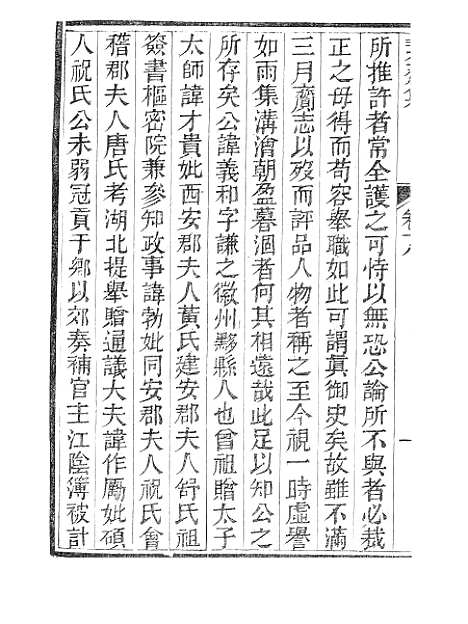 所推許者常全護之可恃以無恐公論所不與者必裁
正之毋得而苟容舉職如此可謂眞御史矣故雖不滿
三月齎志以歿而評品人物者稱之至今視一時虛譽
如雨集溝澮朝盈暮涸者何其相遠哉此足以知公之
所存矣公諱義和字謙之徽州黟縣人也曾祖贈太子
太師諱才貴妣西安郡夫人黃氏建安郡夫人舒氏祖
簽書樞密院兼參知政事諱勃妣同安郡夫人祝氏會
稽郡夫人唐氏考湖北提舉贈通議大夫諱作厲妣碩
人祝氏公未弱冠貢于鄉以郊奏補官主江陰簿被計